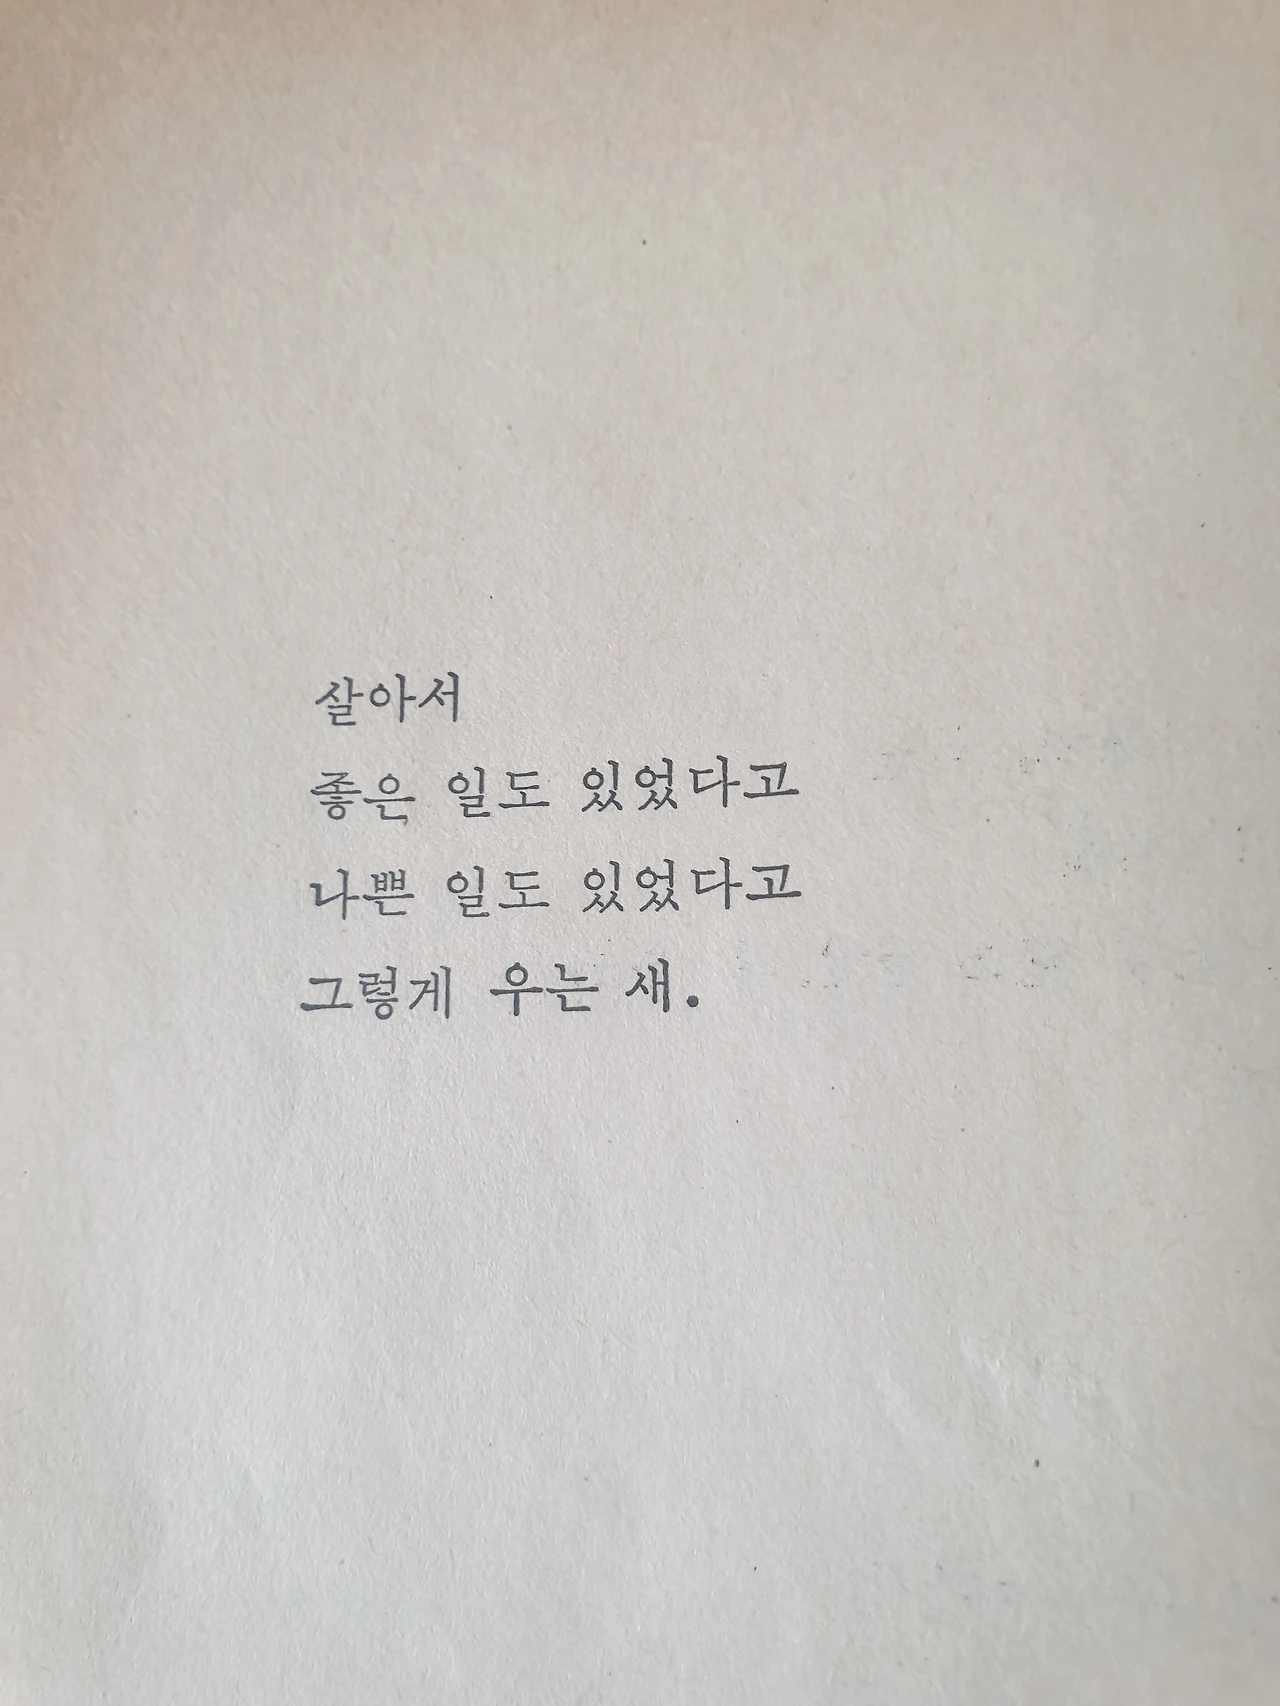 살아서
좋은 일도 있었다고
나쁜 일도 있었다고
그렇게 우는 새.